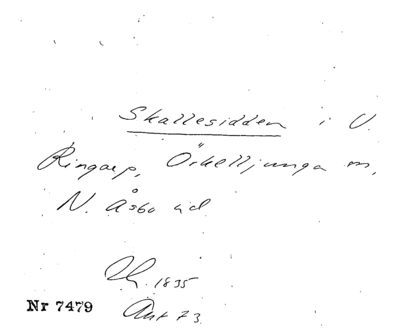 Skallesidden i V.
Ringarp, Örkelljunga sn,
N. Åsbo hd
1835
Nr 7479
Ant 73